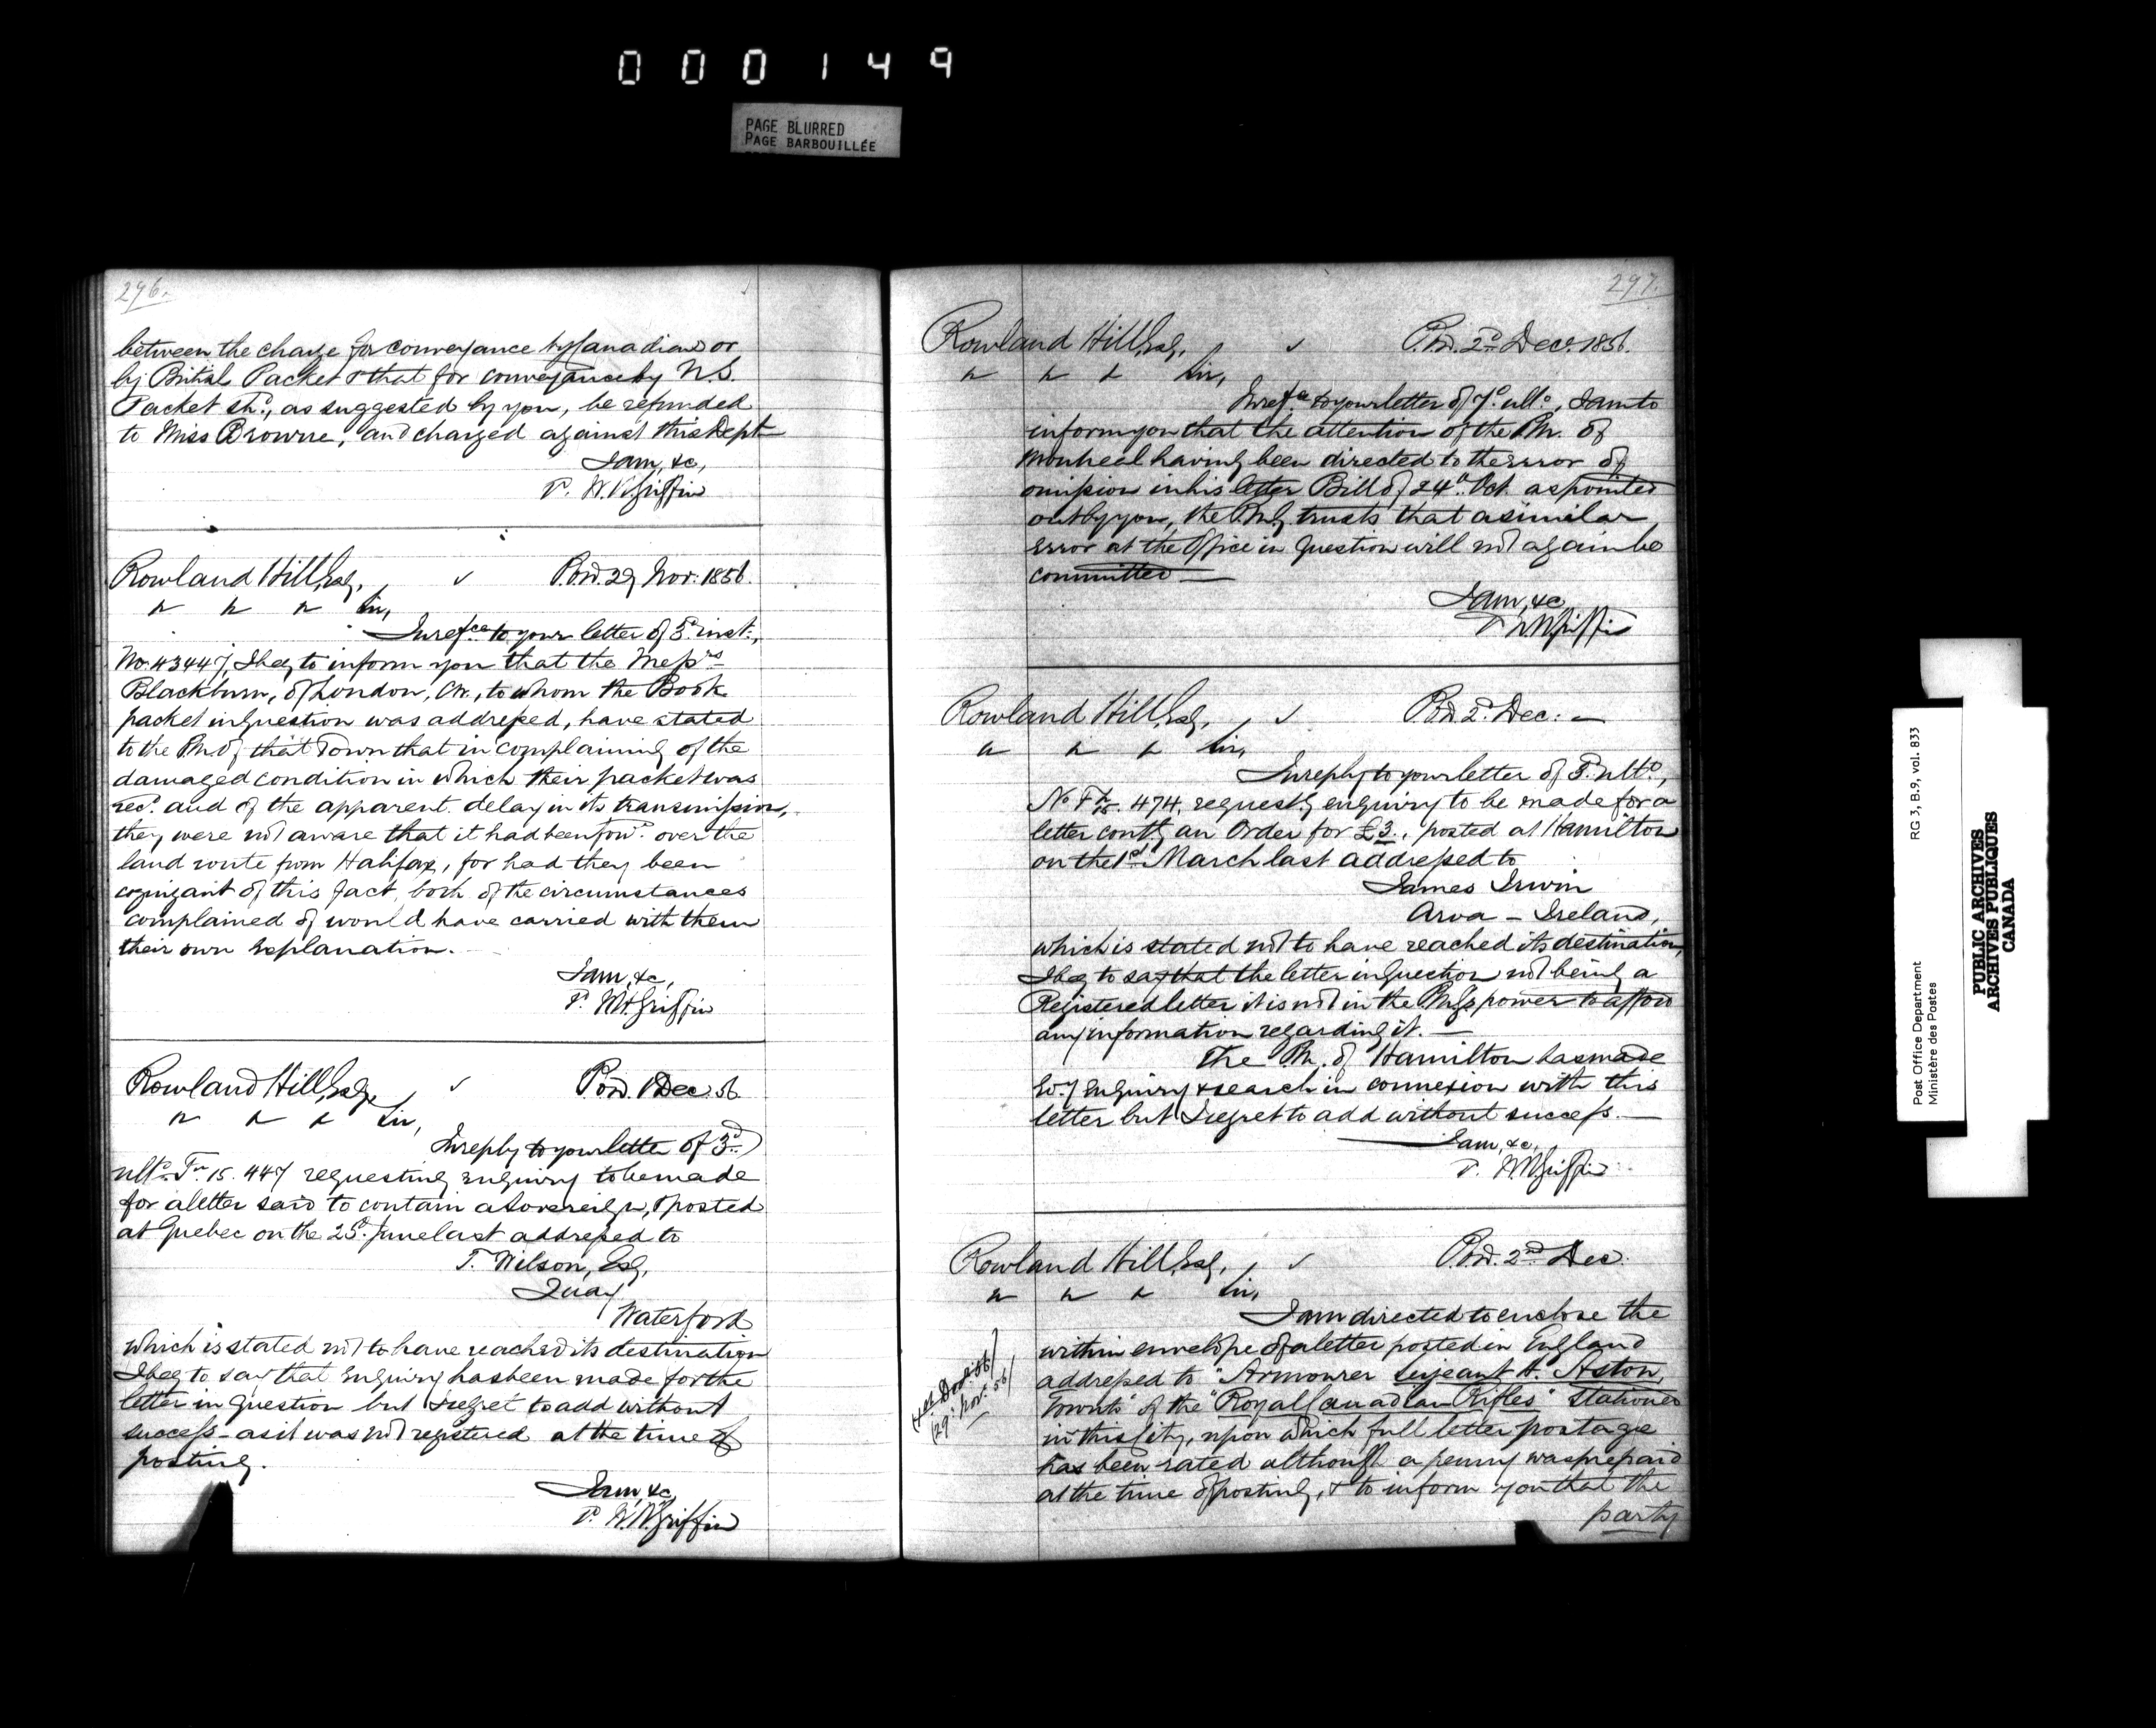 000149
PAGE BLURRED
PAGE BARBOUILLÉE
296.
between the charge for conveyance by Canadian or
by British Packet & that for conveyance by U.S.
Packet shd., as suggested by you, be refunded
to Miss Browne, and charged against this Dept
I am, &c,
W. H. Griffin
Rowland Hill, Esq, P.O.D. 29 Nov: 1856.
" " " Sir,
In refce to your letter of 5th inst:,
No. 43447, I beg to inform you that the Messrs
Blackburn, of London, C.W., to whom the Book
packet in question was addressed, have stated
to the P.M. of that Town that in complaining of the
damaged condition in which their packet was
recd. and of the apparent delay in its transmission,
they were not aware that it had been forwd. over the
land route from Halifax, for had they been
cognizant of this fact, both of the circumstances
complained of would have carried with them
their own explanation.
I am, &c,
W. H. Griffin
Rowland Hill, Esq, P.O.D. 1 Dec. 56
" " " Sir,
In reply to your letter of 3rd
ulto. 15. 447 requesting enquiry to be made
for a letter said to contain a Sovereign, & posted
at Quebec on the 25th. June last addressed to
T. Wilson, Esq,
Quay
Waterford
which is stated not to have reached its destination
I beg to say that enquiry has been made for the
letter in question but I regret to add without
success - as it was not registered at the time of
posting.
I am, &c,
W. H. Griffin
297.
Rowland Hill, Esq, P.O.D. 2nd Decr. 1856.
" " " Sir,
In refce to your letter of 7th. ulto, I am to
inform you that the attention of the P.M. of
Montreal having been directed to the error of
omission in his letter Bill of 24th. Oct. as pointed
out by you, the P.M.G. trusts that a similar
error at the Office in question will not again be
committed —
I am, &c
W H Griffin
Rowland Hill, Esq, P.O.D. 2d. Dec: —
" " " Sir,
In reply to your letter of ulto,
No 474, requestg enquiry to be made for a
letter contg an Order for £3., posted at Hamilton
on the 1st. March last addressed to
James Irwin
Arva - Ireland,
which is stated not to have reached its destination,
I beg to say that the letter in question not being a
Registered letter it is not in the P.M.G.'s power to afford
any information regarding it. —
The P.M. of Hamilton has made
evy enquiry & search in connexion with this
letter but I regret to add without success. —
I am, &c,
W H Griffin
Rowland Hill, Esq, P.O.D. 2nd Dec.
" " " Sir,
I am directed to enclose the
within envelope of a letter posted in England
addressed to "Armourer Serjeant H. Aston,
Toronto" of the "Royal Canadian Rifles" stationed
in this City, upon which full letter postage
has been rated although a penny was prepaid
at the time of posting, & to inform you that the
party
29th Nov. 56
Post Office Department
Ministère des Postes
RG 3, B.9, vol. 833
PUBLIC ARCHIVES
ARCHIVES PUBLIQUES
CANADA